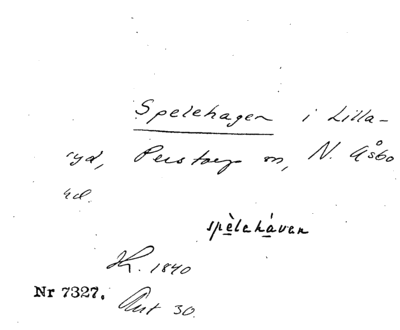 Spelehagen i Lilla-
ryd, Perstorp sn, N. Åsbo
hd.
spèlehàven
H. 1840
Nr 7327. Ant 30.